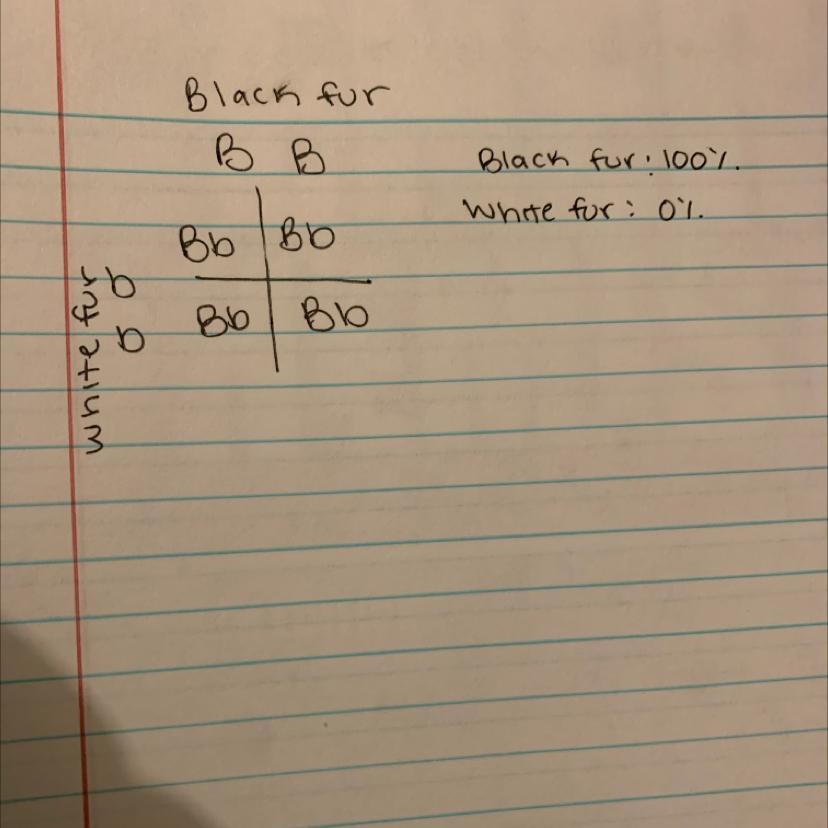 Black fur
B B
Black fur: 100%.
White fur: 0%.
Bb Bb
b
Bb Bb
b
white fur